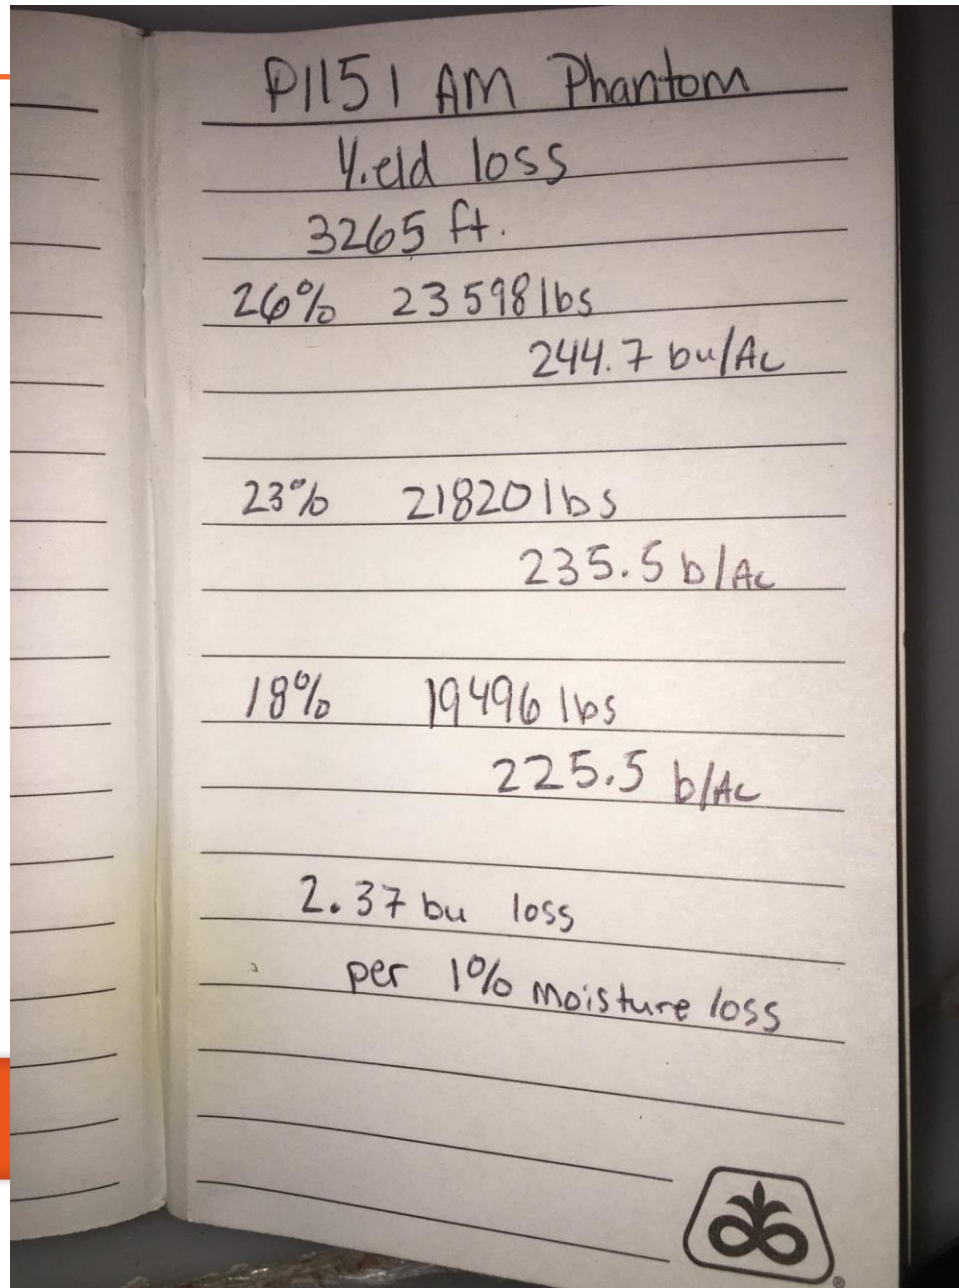 P1151 AM Phantom
Yield loss
3265 ft.
26% 23598 lbs
244.7 bu/Ac
23% 21820 lbs
235.5 b/Ac
18% 19496 lbs
225.5 b/Ac
2.37 bu loss
per 1% moisture loss
®